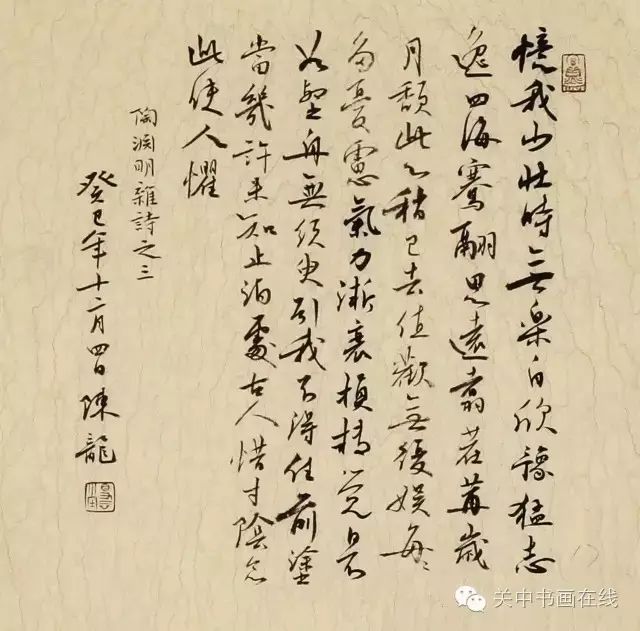 憶我少壯時無樂自欣豫猛志
逸四海騫翮思遠翥荏苒歲
月頹此心稍已去值歡無復娛每〻
多憂慮氣力漸衰損轉覺日不
如壑舟無須臾引我不得住前塗
當幾許未知止泊處古人惜寸陰念
此使人懼
陶淵明雜詩之三
癸巳年十二月四日陳龍
关中书画在线